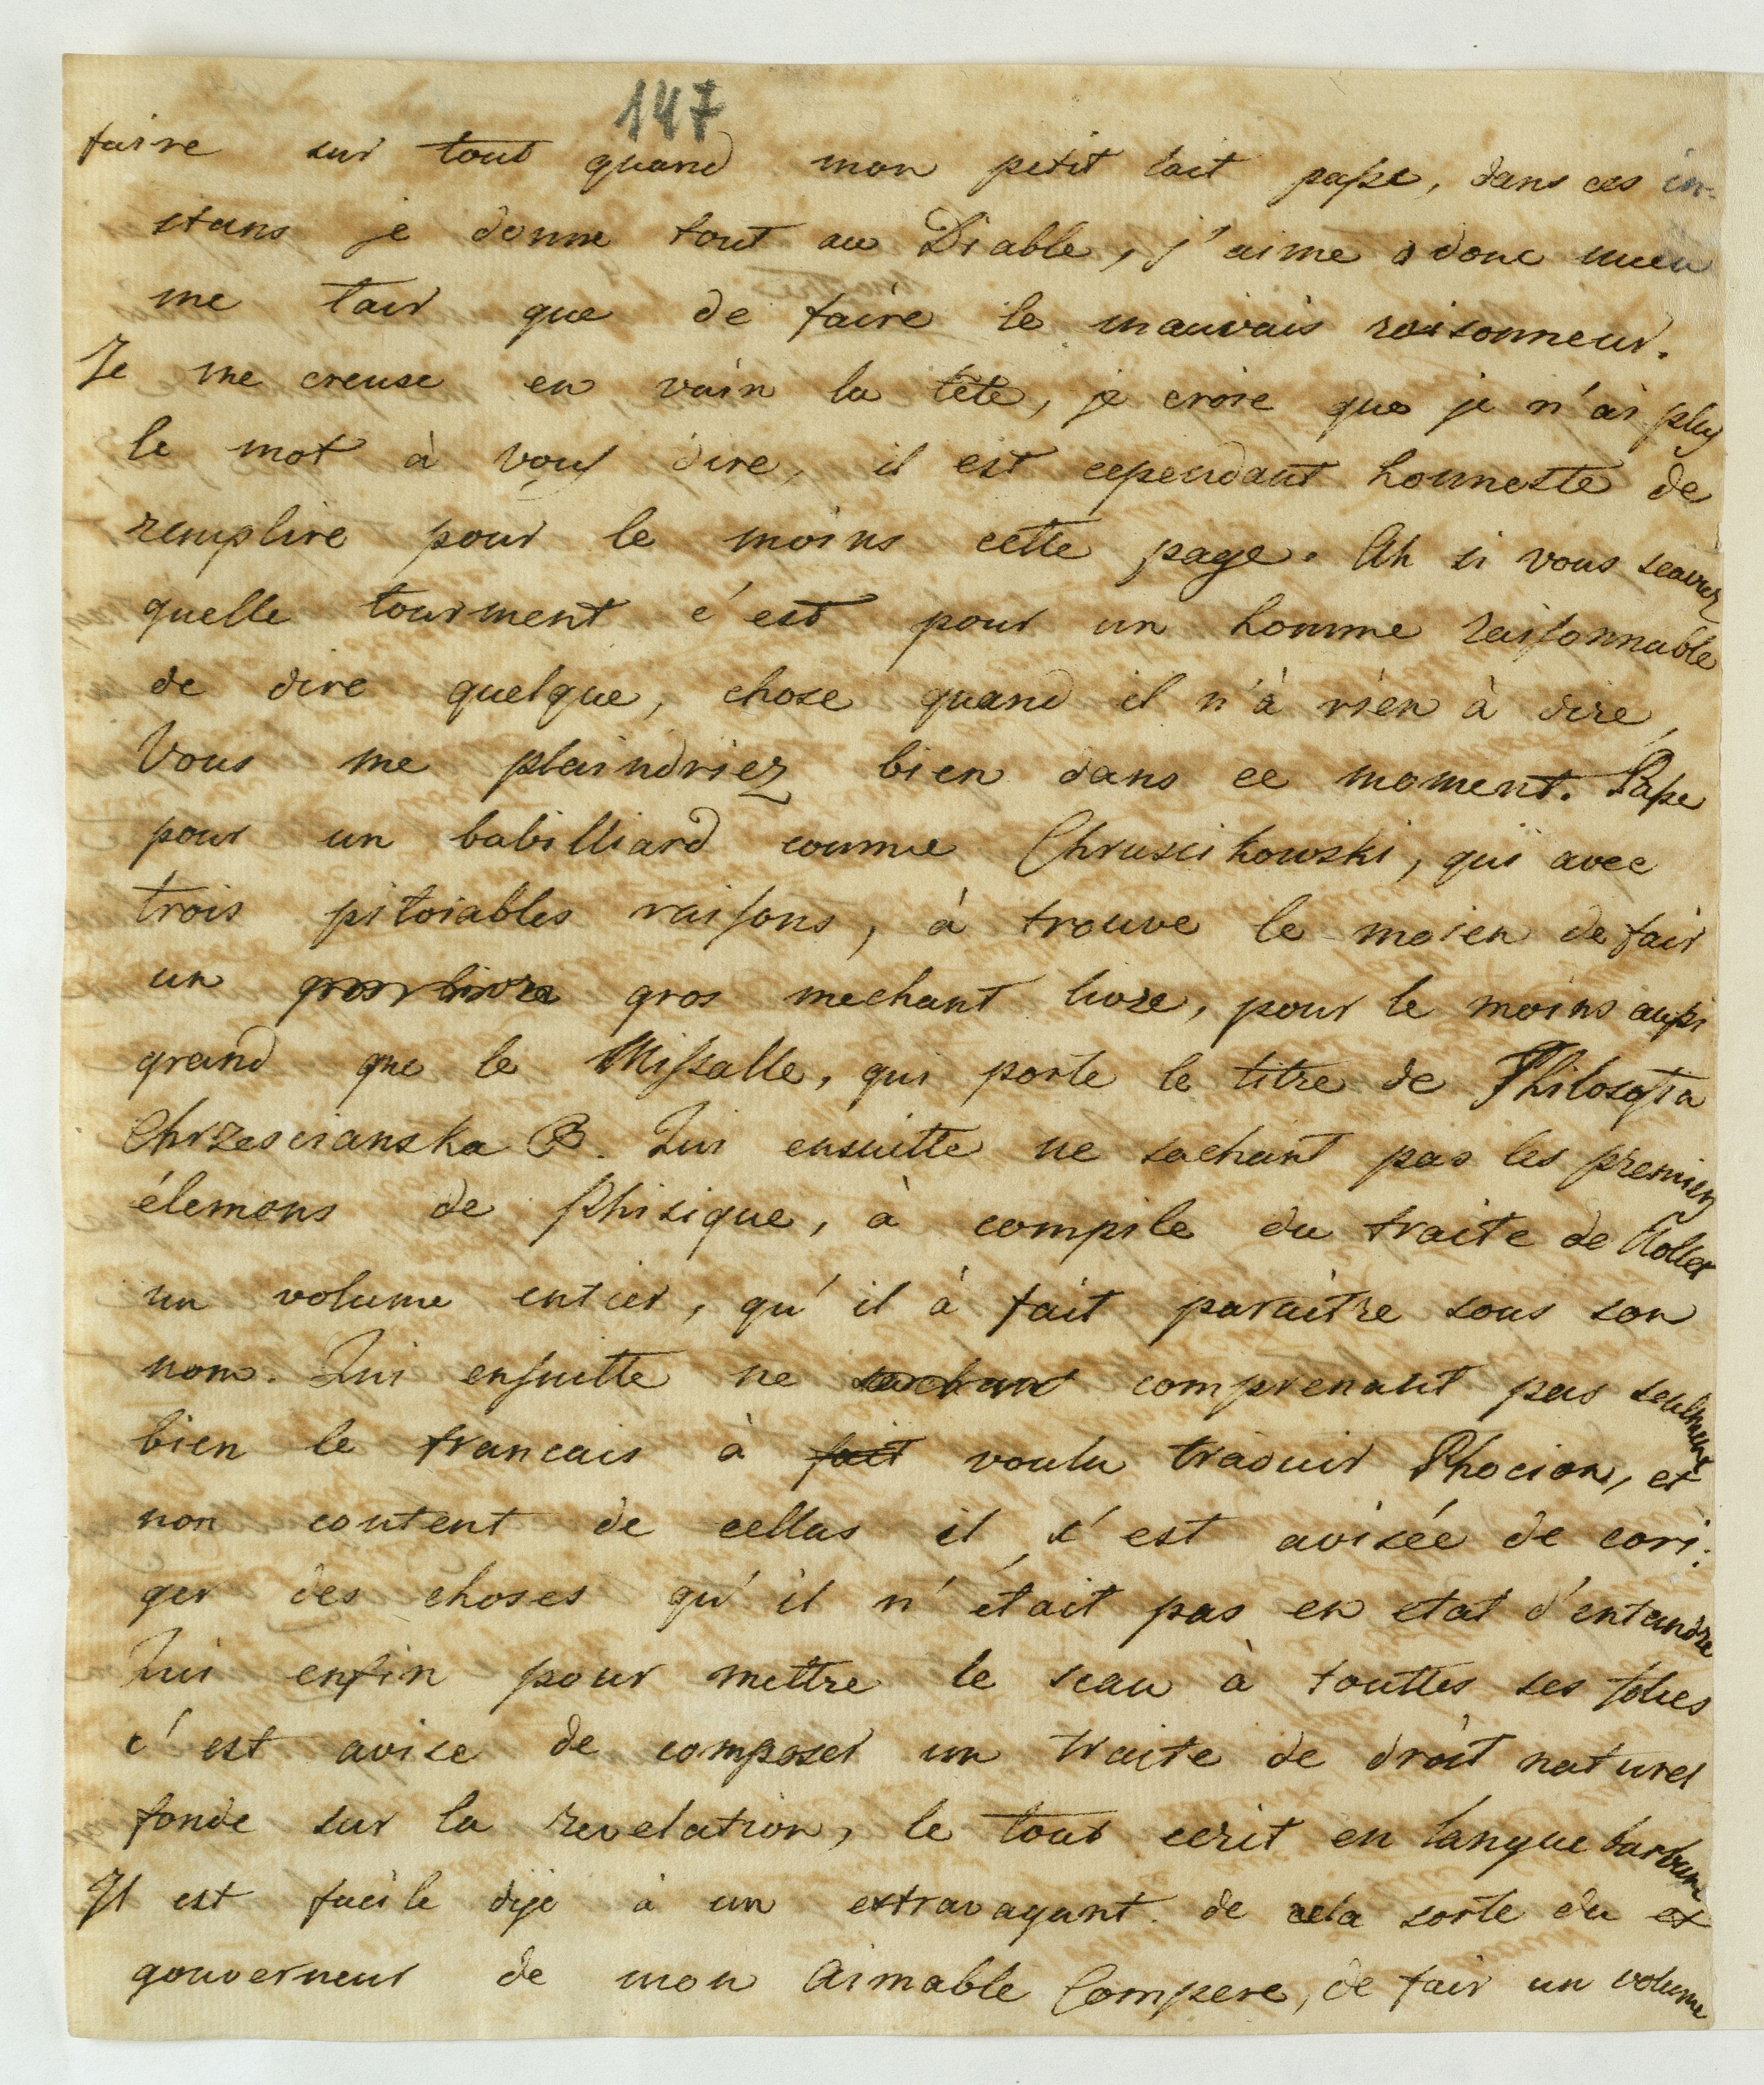 147
faire sur tout quand mon petit lait passe, dans ces in-
stans je donne tout au Diable, j'aime donc mieu
me tair que de faire le mauvais raisonneur.
Je me creuse en vain la tête, je croie que je n'ai plus
le mot à vous dire, il est cependant honneste de
remplire pour le moins cette page. Ah si vous scaviez
quelle tourment c'est pour un homme raisonnable
de dire quelque, chose quand il n'à rien à dire,
Vous me plaindriez bien dans ce moment. Passe
pour un babilliard comme Chruscikowski, qui avec
trois pitoiables raisons, à trouve le moien de fair
un gros livre gros mechant livre, pour le moins aussi
grand que le Missalle, qui porte le titre de Philosofia
Chrzescianska. Qui ensuitte ne sachant pas les premiers
élemens de Phisique, à compile du traite de Nollet
un volume entier, qu'il à fait paraitre sous son
nom. Qui ensuitte ne sachant comprenant pas seulment
bien le francais à fait voulu traduir Phocion, et
non content de cellas il s'est avisée de cori:
ger des choses qu'il n'était pas en etat d'entandre
Qui enfin pour mettre le seau à touttes ses folies
c'est avise de composer un traite de droit naturel
fonde sur la revelation, le tout ecrit en langue barbare
Il est facile dije à un extravagant de cela sorte du ex
gouverneur de mon aimable Compere, de fair un volume